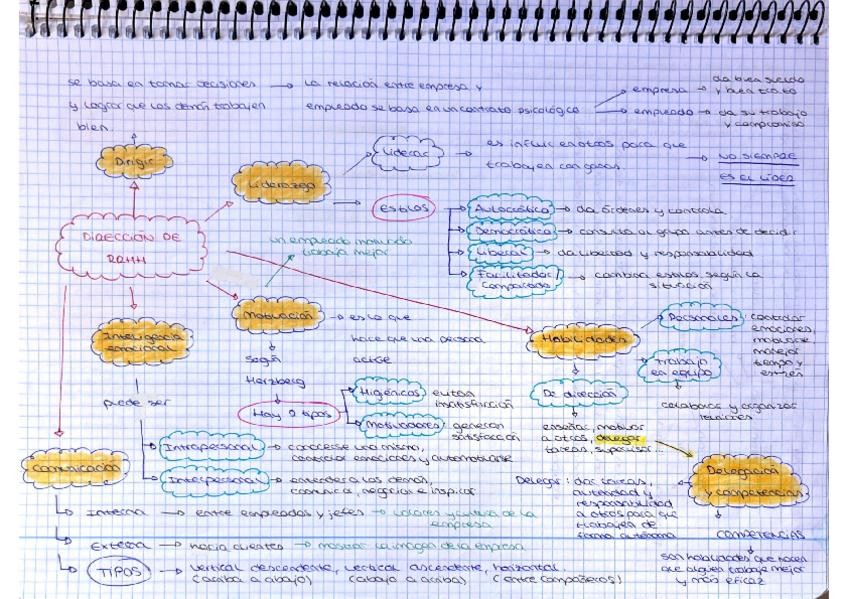 se basa en tomar decisiones → La relación entre empresa y
y lograr que los demás trabajen empleado se basa en un contrato psicológico
bien.
empresa → da buen sueldo
y buen trato
empleado → da su trabajo
y compromiso
Dirigir
Liderazgo
Liderar → es influir en otros para que
trabajen con ganas.
→ NO SIEMPRE
ES EL LÍDER
→ estilos
Autocrático → da órdenes y controla
Democrático → consulta al grupo antes de decidir
Liberal → da libertad y responsabilidad
Facilitador/
Compactado → cambia estilos según la
situación
DIRECCIÓN DE
RRHH
un empleado motivado
trabaja mejor
Motivación → es lo que
hace que una persona
actúe
según
Herzberg
Hay 2 tipos
Higénicos: evitan
insatisfacción
Motivadores: generan
satisfacción
Inteligencia
emocional
puede ser
Intrapersonal → conocerse uno mismo,
controlar emociones y automotivarse
Interpersonal → entender a los demás,
comunica, negociar e inspirar
Habilidades
Personales: controlar
emociones,
motivarse,
manejar
tiempo y
estrés
Trabajo
en equipo
colaborar y organizar
reuniones
De dirección
enseñar, motivar
a otros, delegar
tareas, supervisar...
Delegación
y competencias
Delegar: dar tareas,
autoridad y
responsabilidad
a otros para que
trabajen de
forma autónoma
COMPETENCIAS
son habilidades que hacen
que alguien trabaje mejor
y más eficaz
Comunicación
Interna → entre empleados y jefes → valores y cultura de la
empresa
Externa → hacia clientes → mostrar la imagen de la empresa
TIPOS → vertical descendente, vertical ascendente, horizontal.
(arriba a abajo) (abajo a arriba) (entre compañeros)